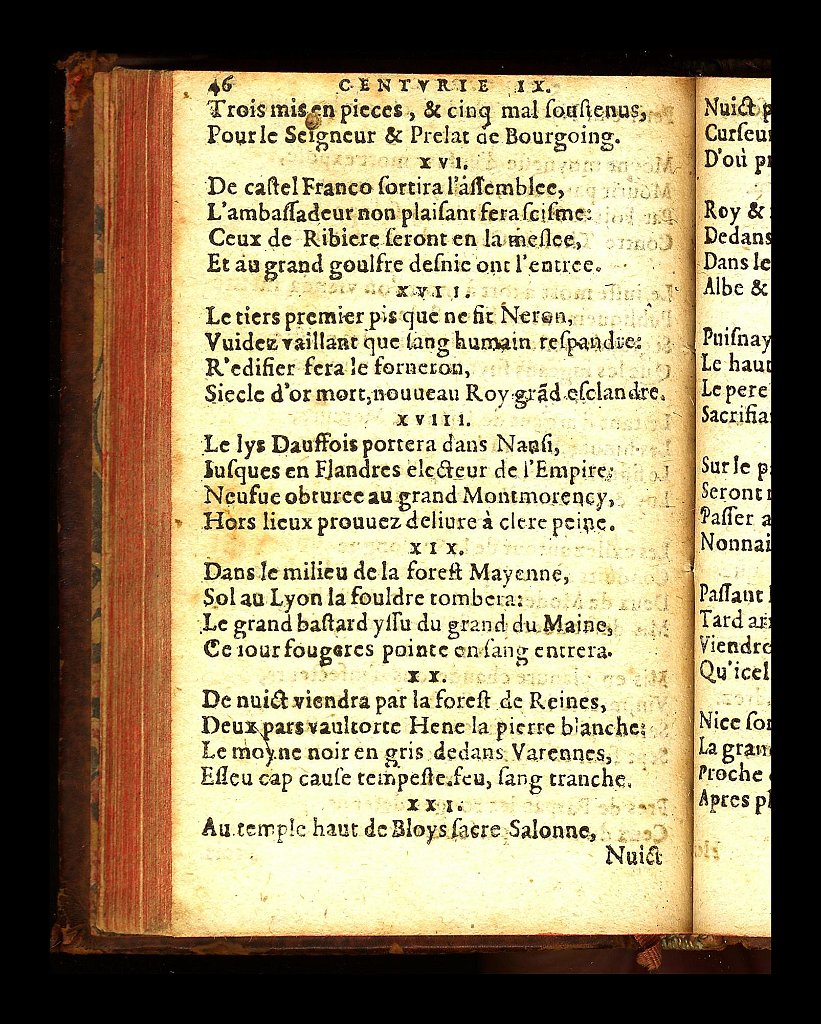 46 CENTVRIE IX.
Trois mis en pieces, & cinq mal souſtenus,
Pour le Seigneur & Prelat de Bourgoing.
XVI.
De caſtel Franco ſortira l'aſſemblee,
L'ambaſſadeur non plaiſant fera ſciſme:
Ceux de Ribiere ſeront en la meſlee,
Et au grand goulfre deſnie ont l'entree.
XVII.
Le tiers premier pis que ne fit Neron,
Vuidez vaillant que ſang humain reſpandre:
R'edifier fera le forneron,
Siecle d'or mort, nouueau Roy grãd eſclandre.
XVIII.
Le lys Dauffois portera dans Nanſi,
Iuſques en Flandres electeur de l'Empire,
Neufue obturee au grand Montmorency,
Hors lieux prouuez deliure à clere peine.
XIX.
Dans le milieu de la foreſt Mayenne,
Sol au Lyon la fouldre tombera:
Le grand baſtard yſſu du grand du Maine,
Ce iour fougeres pointe en ſang entrera.
XX.
De nuict viendra par la foreſt de Reines,
Deux pars vaultorte Hene la pierre blanche:
Le moyne noir en gris dedans Varennes,
Eſleu cap cauſe tempeſte, feu, ſang tranche.
XXI.
Au temple haut de Bloys ſacre Salonne,
Nuict
Nuict p
Curſeur
D'où pr
Roy &
Dedans
Dans le
Albe &
Puiſnay
Le haut
Le pere
Sacrifia
Sur le p
Seront
Paſſer a
Nonnai
Paſſant
Tard ar
Viendro
Qu'icel
Nice ſor
La gran
Proche
Apres pl